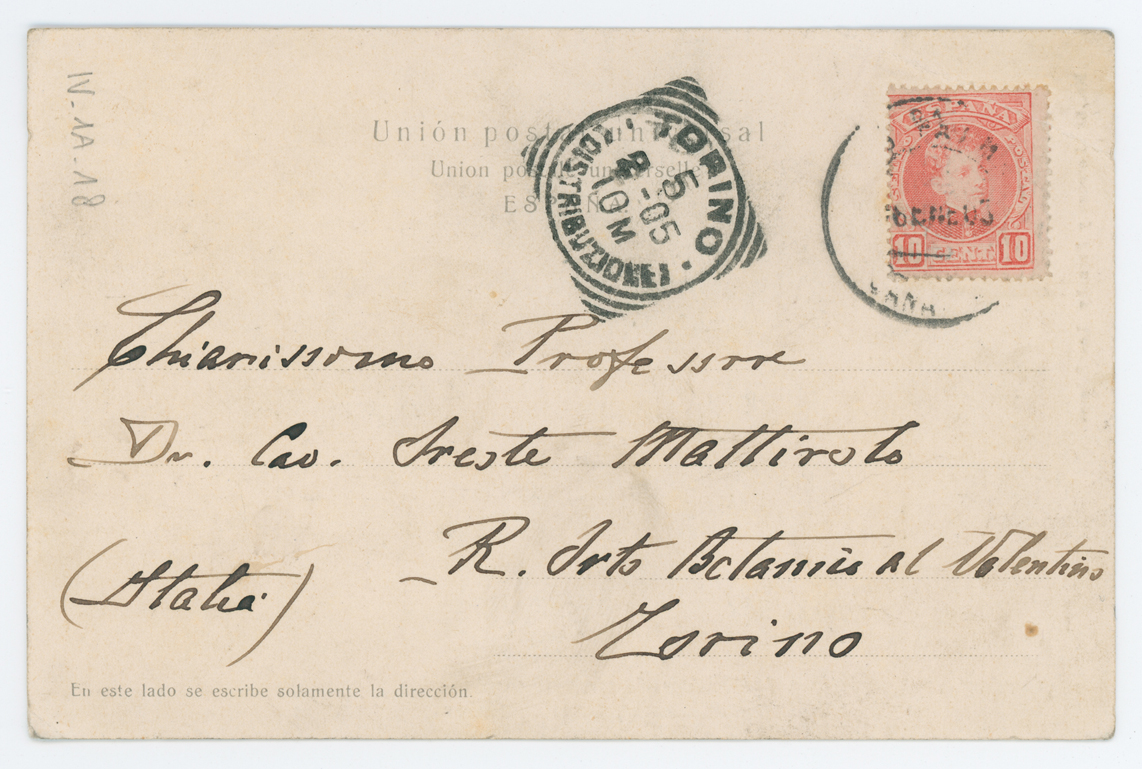 IV-1A-18
Unión postal universal
Union postale universelle
ESPAÑA
TORINO
5
2-05
10M
DISTRIBUZIONE
ESPAÑA
ENE 05
10 CENT 10
Chiarissomo Professore
Dr. Cav. Oreste Mattirolo
R. Orto Botanico al Valentino
(Italia)
Torino
En este lado se escribe solamente la dirección.